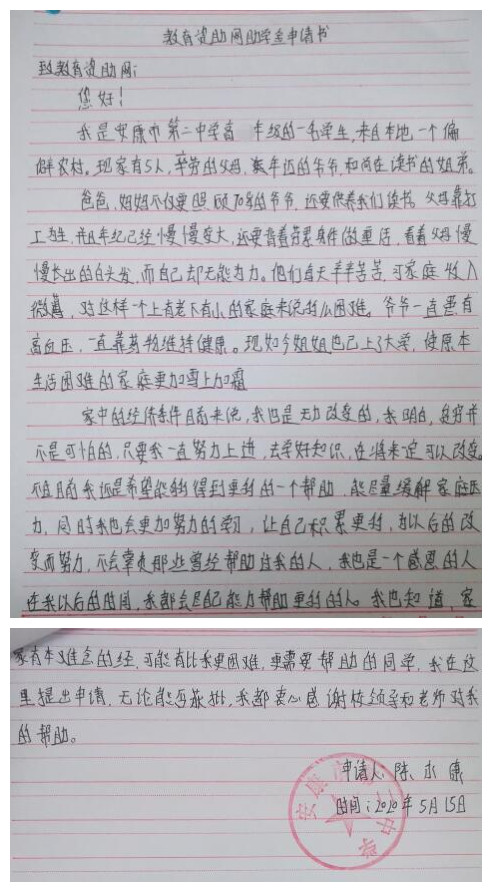 教育资助网助学金申请书
致教育资助网:
您好!
我是安康市第二中学高 年级的一名学生,来自本地一个偏
僻农村。现家有5人,辛劳的父母,年迈的爷爷和尚在读书的姐弟。
爸爸,妈妈不仅要照顾70多的爷爷,还要供养我们读书,父母靠打
工为生,并且年纪已经慢慢变大,还要背着劳累身体做重活,看着父母慢
慢长出的白头发,而自己却无能为力。他们每天辛辛苦苦,可家庭收入
微薄,对这样一个上有老下有小的家庭来说的么困难。爷爷一直患有
高血压,一直靠药物维持健康。现如今姐姐也已上了大学,使原本
生活困难的家庭更加雪上加霜
家中的经济条件目前来说,我也是无力改变的,我明白,贫穷并
不是可怕的,只要我一直努力上进,去学好知识,在将来定可以改变。
但目前我还是希望能够得到更好的一个帮助,能尽量缓解家庭压
力,同时我也会更加努力的学习,让自己积累更好,为以后的改
变而努力,不会辜负那些曾经帮助过我的人,我也是一个感恩的人
在我以后的时间,我都会尽自己能力帮助更好的人。我也知道,家
家有本难念的经,可能有比我更困难,更需要帮助的同学,我在这
里提出申请,无论能否获批,我都衷心感谢校领导和老师对我
的帮助。
申请人:陈永康
时间:2020年5月15日